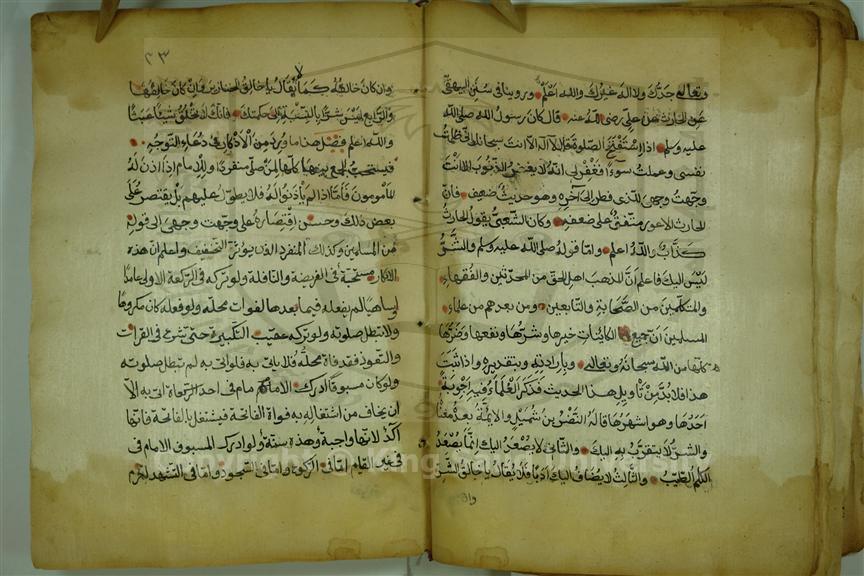 وتعالى جدك ولا اله غيرك والله اعلم وروينا في سنن البيهقي
عن الحارث عن علي رضي الله عنه قال كان رسول الله صلى الله
عليه وسلم اذا استفتح الصلوة قال لا اله الا انت سبحانك اني ظلمت
نفسي وعملت سوءا فاغفر لي انه لا يغفر الذنوب الا انت
وجهت وجهي للذي فطر الى آخره وهو حديث ضعيف فان
الحارث الاعور متفق على ضعفه وكان الشعبي يقول الحارث
كذاب والله اعلم واما قوله صلى الله عليه وسلم والشر
ليس اليك فاعلم ان مذهب اهل الحق من المحدثين والفقهاء
والمتكلمين من الصحابة والتابعين ومن بعدهم من علماء
المسلمين ان جميع الكاينات خيرها وشرها ونفعها وضرها
كلها من الله سبحانه وتعالى وبارادته وبتقديره واذا ثبت
هذا فلا بد من تأويل هذا الحديث فذكر العلماء فيه اجوبة
احدها وهو اشهرها قاله النضر بن شميل والايمة بعده معناه
والشر لا يتقرب به اليك والثاني لا يصعد اليك انما يصعد
الكلم الطيب والثالث لا يضاف اليك ادبا فلا يقال يا خالق الشر
وان
٣٣
وان كان خالقه كما لا يقال يا خالق الخنازير وان كان خالقها
والرابع ليس شرا بالنسبة الى حكمتك فانك لا تخلق شيئا عبثا
والله اعلم فصل هذا ما ورد من الاذكار في دعاء التوجه
فيستحب الجمع بينها كلها لمن صلى منفردا وللامام اذا اذن له
المأمومون فاما اذا لم يأذنوا له فلا يطول عليهم بل يقتصر على
بعض ذلك وحسن اقتصاره على وجهت وجهي الى قوله
من المسلمين وكذلك المنفرد الذي يوثر التخفيف واعلم ان هذه
الاذكار مستحبة في الفريضة والنافلة ولو تركه في الركعة الاولى عامدا
او ساهيا لم يفعله فيما بعدها لفوات محله ولو فعله كان مكروها
ولا تبطل صلوته ولو تركه عقيب التكبيرة حتى شرع في القراة
والتعوذ فقد فاة محله فلا ياتي به فلو اتى به لم تبطل صلوته
ولو كان مسبوقا ادرك الامام في احد الركعاة اتى به الا
ان يخاف من اشتغاله به فواة الفاتحة فيشتغل بالفاتحة فانها
آكد لانها واجبة وهذه سنة ولو ادرك المسبوق الامام في
غير القيام اما في الركوع واما في السجود واما في التشهد احرم